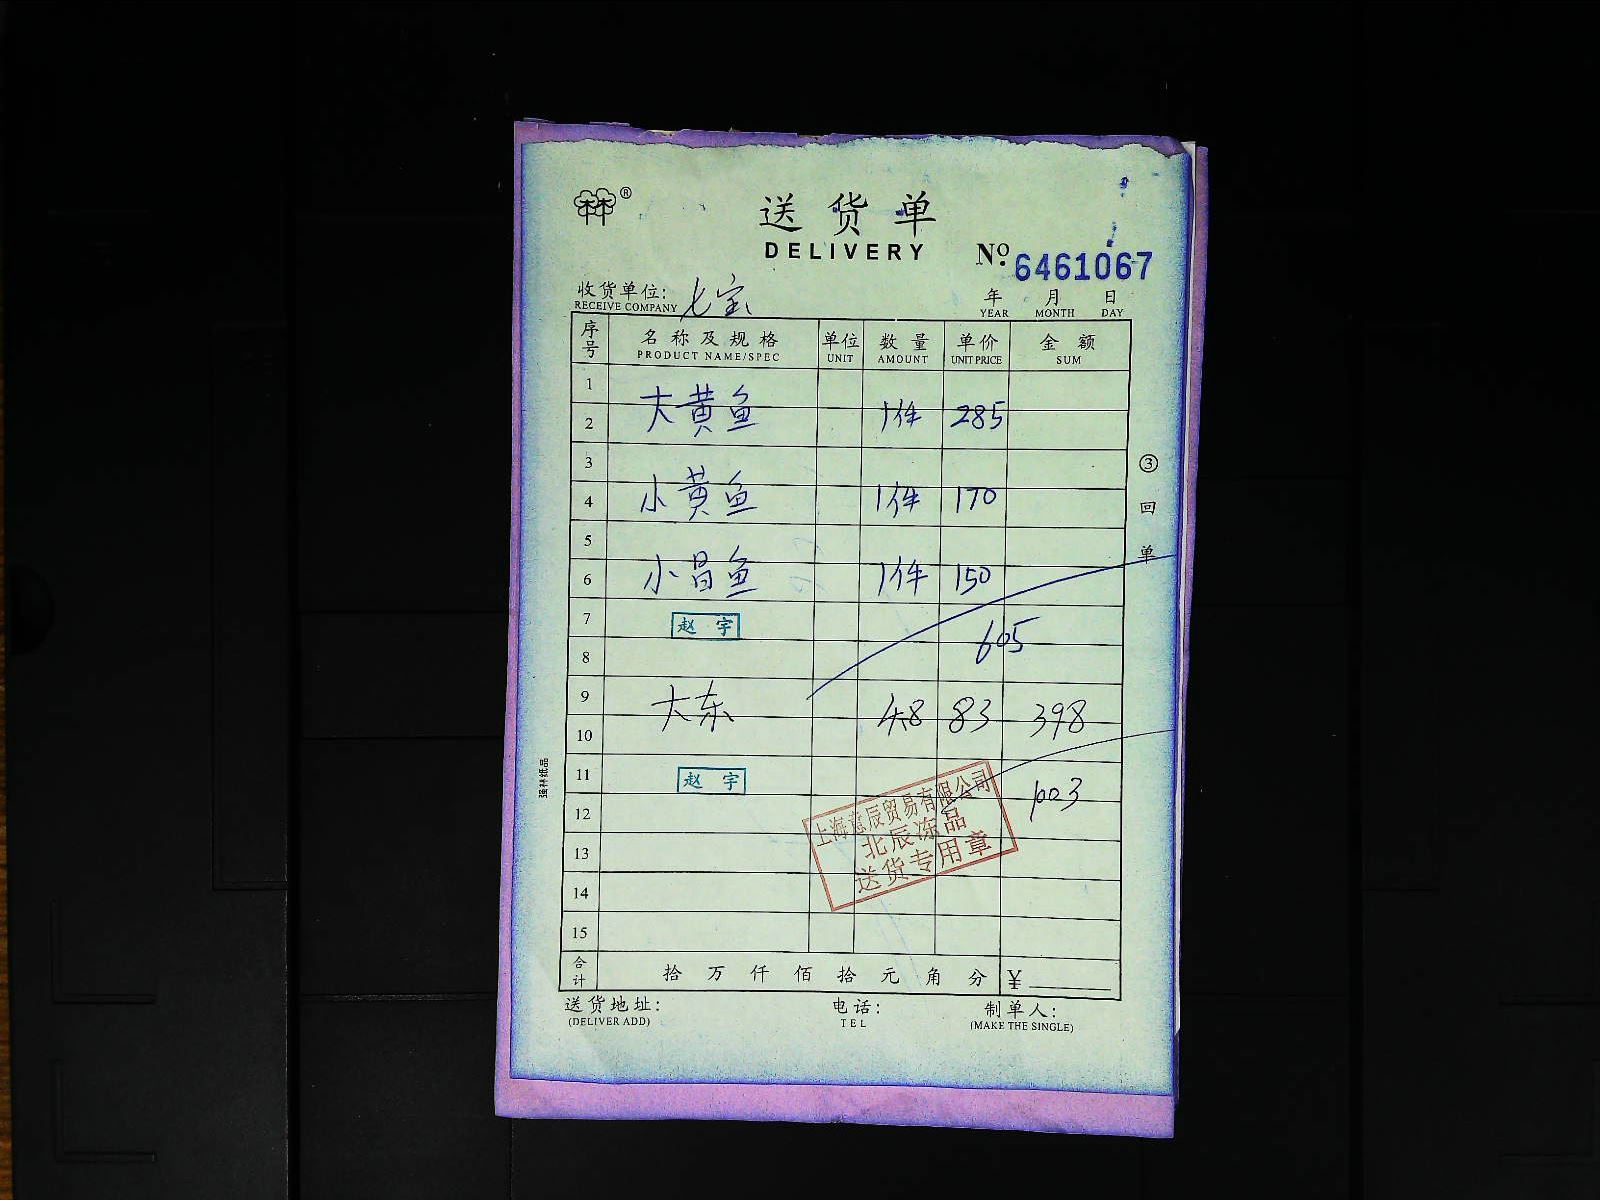 ®
送货单
DELIVERY
Nº 6461067
收货单位: 七宝
RECEIVE COMPANY
年 月 日
YEAR MONTH DAY
序号 名称及规格 单位 数量 单价 金额
PRODUCT NAME/SPEC UNIT AMOUNT UNIT PRICE SUM
1
大黄鱼 1件 285
2
3
小黄鱼 1件 170
4
5
小昌鱼 1件 150
6
7 赵宇
605
8
9
大东 4.8 83 398
10
11 赵宇
1003
12
13
14
15
上海慧辰贸易有限公司
北辰冻品
送货专用章
合计 拾 万 仟 佰 拾 元 角 分 ¥
送货地址: 电话: 制单人:
(DELIVER ADD) TEL (MAKE THE SINGLE)
③回单
强林纸品